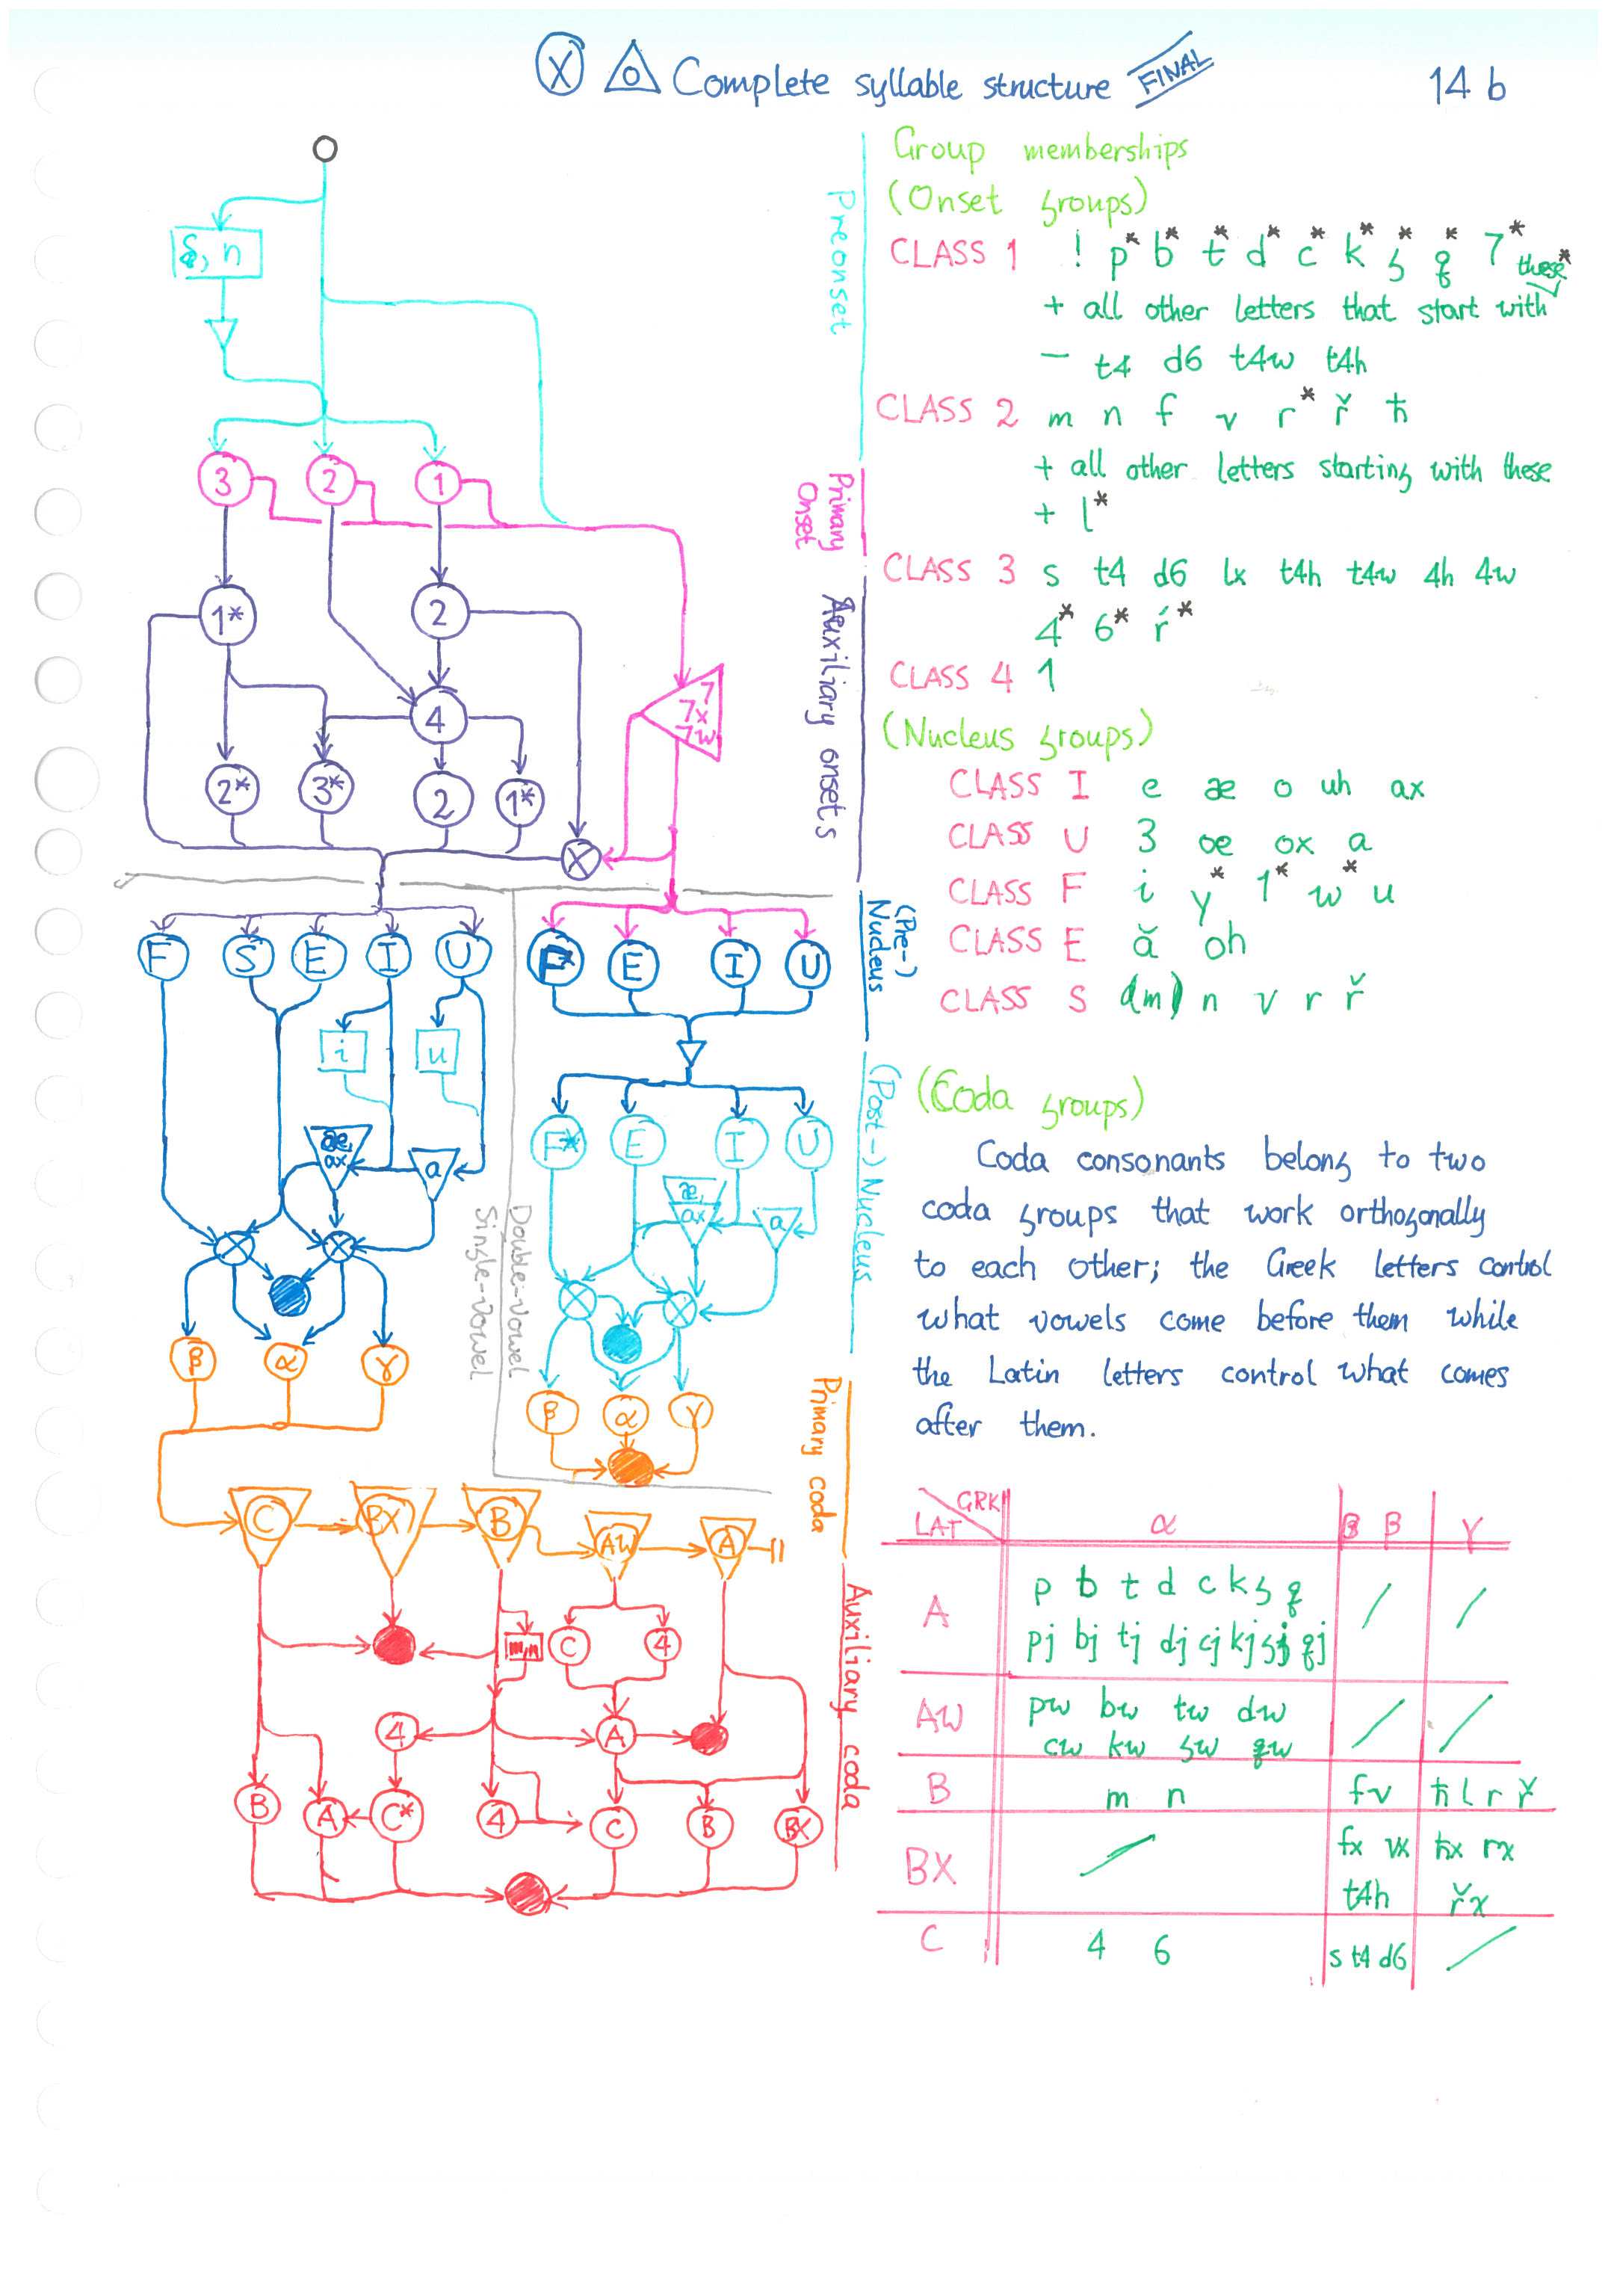 X Complete syllable structure FINAL 14 b
Preonset
n
3 2 1
Primary Onset
1* 2
4
7
7x
7w
2* 3* 2 1*
X
Auxiliary onsets
F S E I U
F* E I U
(Pre-) Nucleus
i u
F* E I U
æ, ax a
æ, ax a
(Post-) Nucleus
Double-vowel
Single-vowel
β α γ
β α γ
Primary coda
C BX B AW A
m,n C 4
4 A
B A C* 4 C B BX
Auxiliary coda
Group memberships
(Onset groups)
CLASS 1 ! p* b* t* d* c* k* ɜ* ƍ* 7* these*
+ all other letters that start with
— t4 d6 t4w t4h
CLASS 2 m n f v r* ř ħ
+ all other letters starting with these
+ l*
CLASS 3 s t4 d6 lx t4h t4w 4h 4w
4* 6* ŕ*
CLASS 4 1
(Nucleus groups)
CLASS I e æ o uh ax
CLASS U 3 œ ox a
CLASS F i y* 1* w* u
CLASS E ă oh
CLASS S (m) n v r ř
(Coda groups)
Coda consonants belong to two
coda groups that work orthogonally
to each other; the Greek letters control
what vowels come before them while
the Latin letters control what comes
after them.
LAT GRK α β γ
A p b t d c k g q / /
pj bj tj dj cj kj gj qj
AW pw bw tw dw / /
cw kw gw qw
B m n f v ħ l r ř
BX / fx vx ħx rx
t4h řx
C 4 6 s t4 d6 /